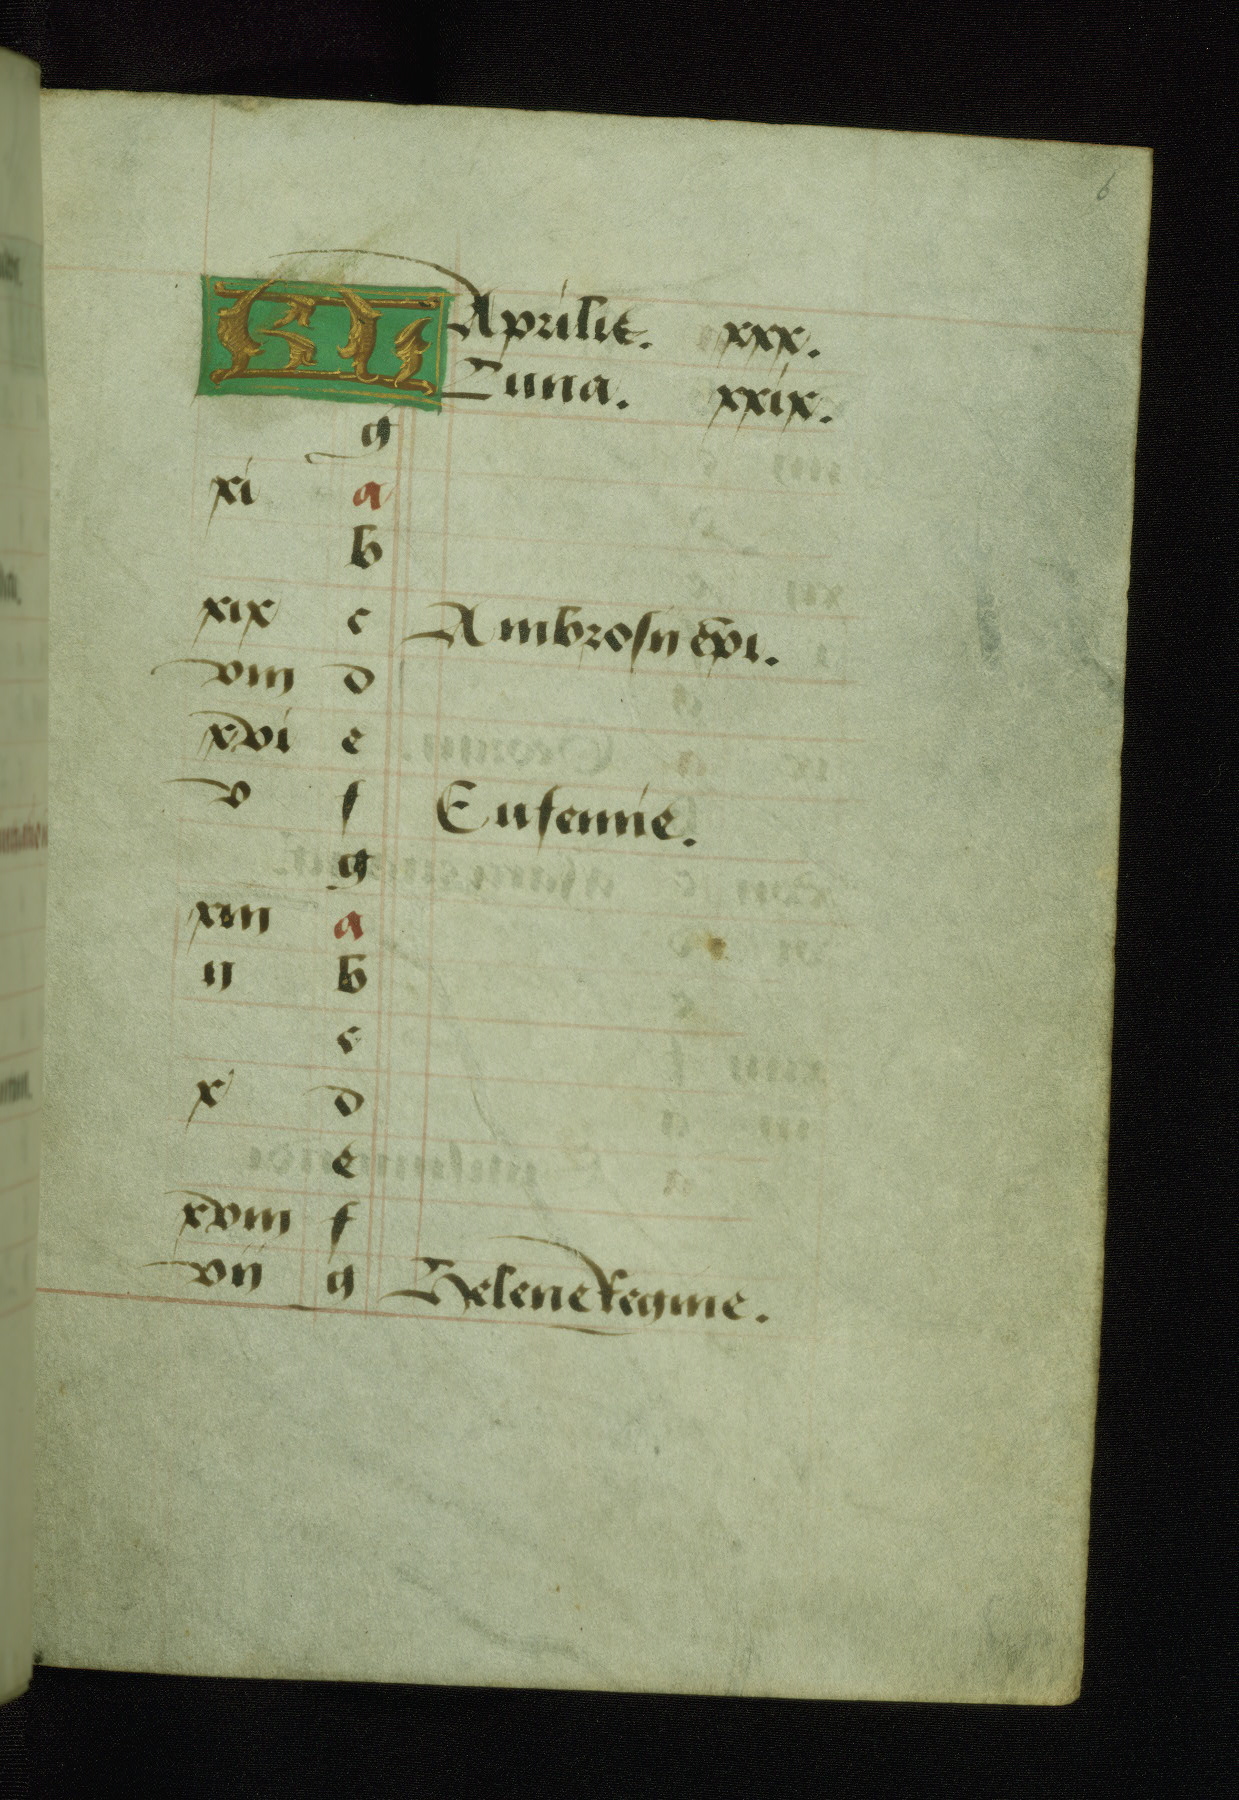 6
KL Aprilis. xxx.
Luna. xxix.
g
xi a
b
xix c Ambrosij ep̄i.
viii d
xvi e
v f Eufemie.
g
xiii a
ij b
c
x d
e
xviii f
vij g Helene regine.